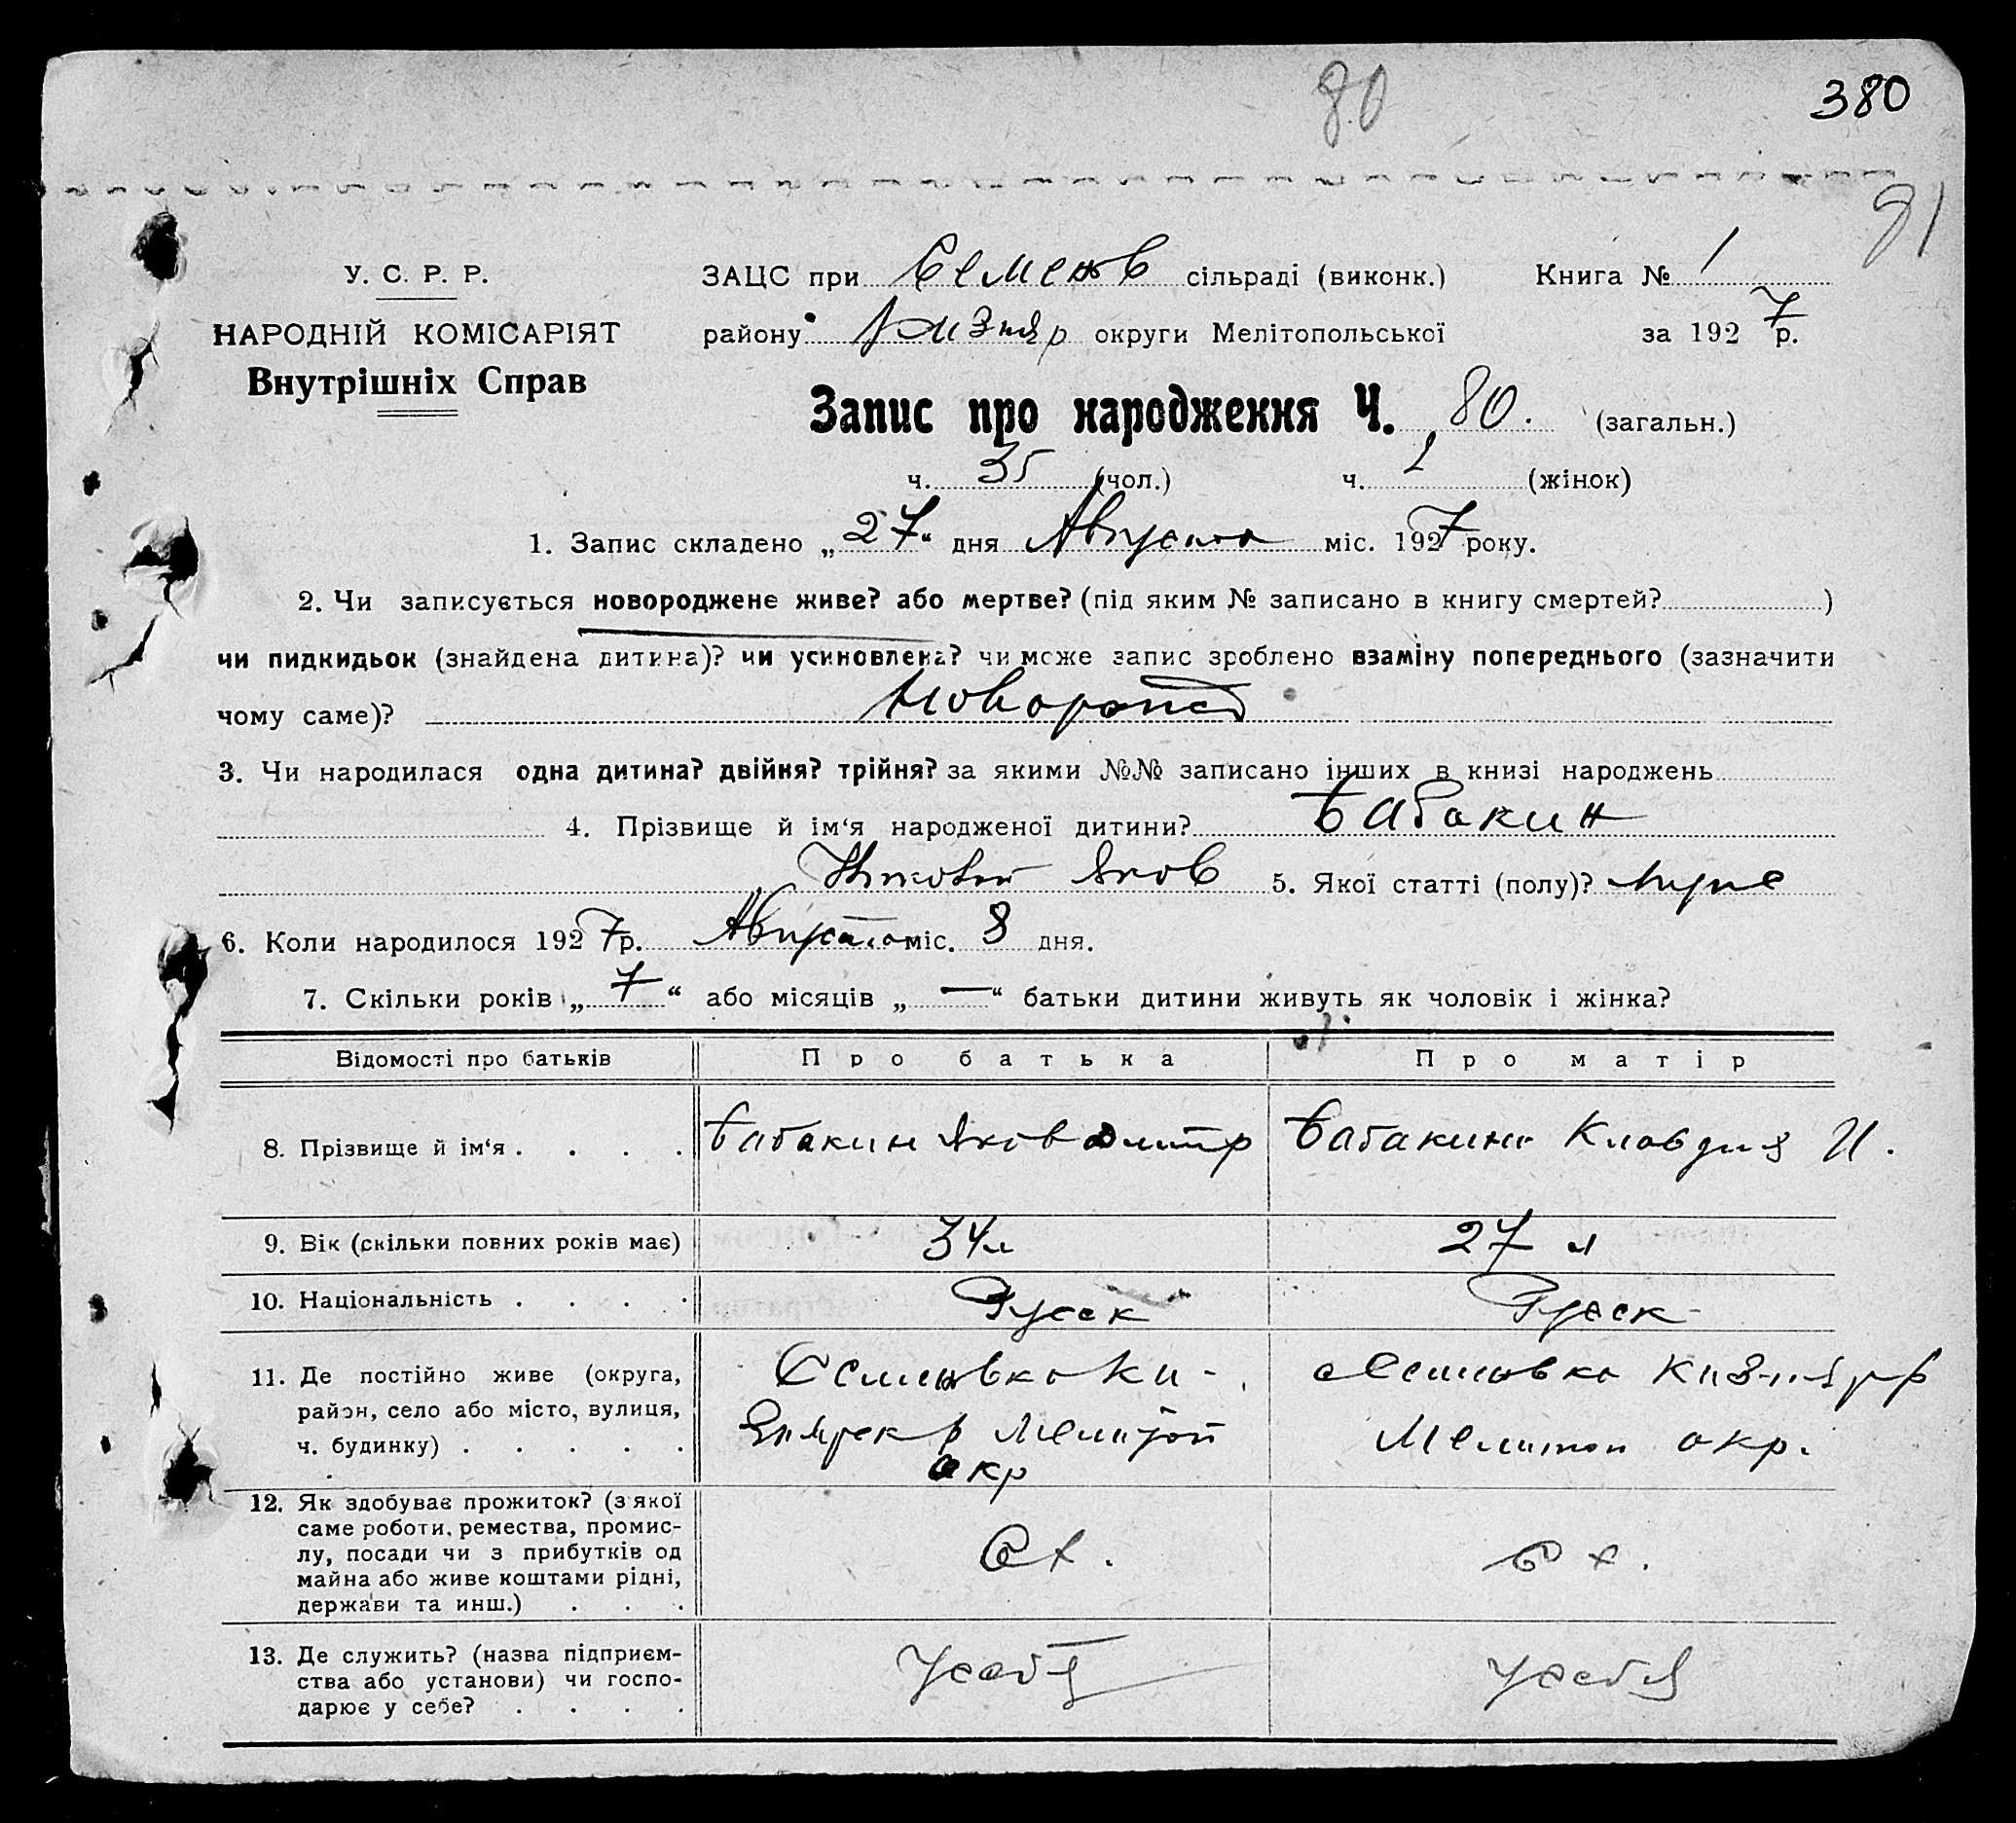 80
380
81
У. С. Р. Р.
НАРОДНІЙ КОМІСАРІЯТ
Внутрішніх Справ
ЗАЦС при Семенов сільраді (виконк.) Книга № 1
району округи Мелітопольської за 1927 р.
Запис про народження Ч. 80. (загальн.)
ч. 35 (чол.) ч. (жінок)
1. Запис складено „27“ дня Августа міс. 1927 року.
2. Чи записується новороджене живе? або мертве? (під яким № записано в книгу смертей? )
чи пидкидьок (знайдена дитина)? чи усиновлена? чи може запис зроблено взаміну попереднього (зазначити
чому саме)?Новорожд
3. Чи народилася одна дитина? двійня? трійня? за якими №№ записано інших в книзі народжень
4. Прізвище й ім‘я народженої дитини? Бабакин
Яков 5. Якої статті (полу)?
6. Коли народилося 1927 р. Августа міс. 8 дня.
7. Скільки років „7“ або місяців „—“ батьки дитини живуть як чоловік і жінка?
Відомості про батьків Про батька Про матір
8. Прізвище й ім‘я . . . . Бабакин Яков Дмитр Бабакина Клавдия И.
9. Вік (скільки повних років має) 34 л 27 л
10. Національність . . . . Русск Русск
11. Де постійно живе (округа,
район, село або місто, вулиця,
ч. будинку) . . . . .
Семеновка Ки-
зиярск р Мелитоп
окр
Семеновка Кизияр р
Мелитоп окр.
12. Як здобуває прожиток? (з якої
саме роботи, ремества, промис-
лу, посади чи з прибутків од
майна або живе коштами рідні,
держави та инш.) . . .
С х. С х.
13. Де служить? (назва підприєм-
ства або установи) чи госпо-
дарює у себе? . . . .
У себя У себя